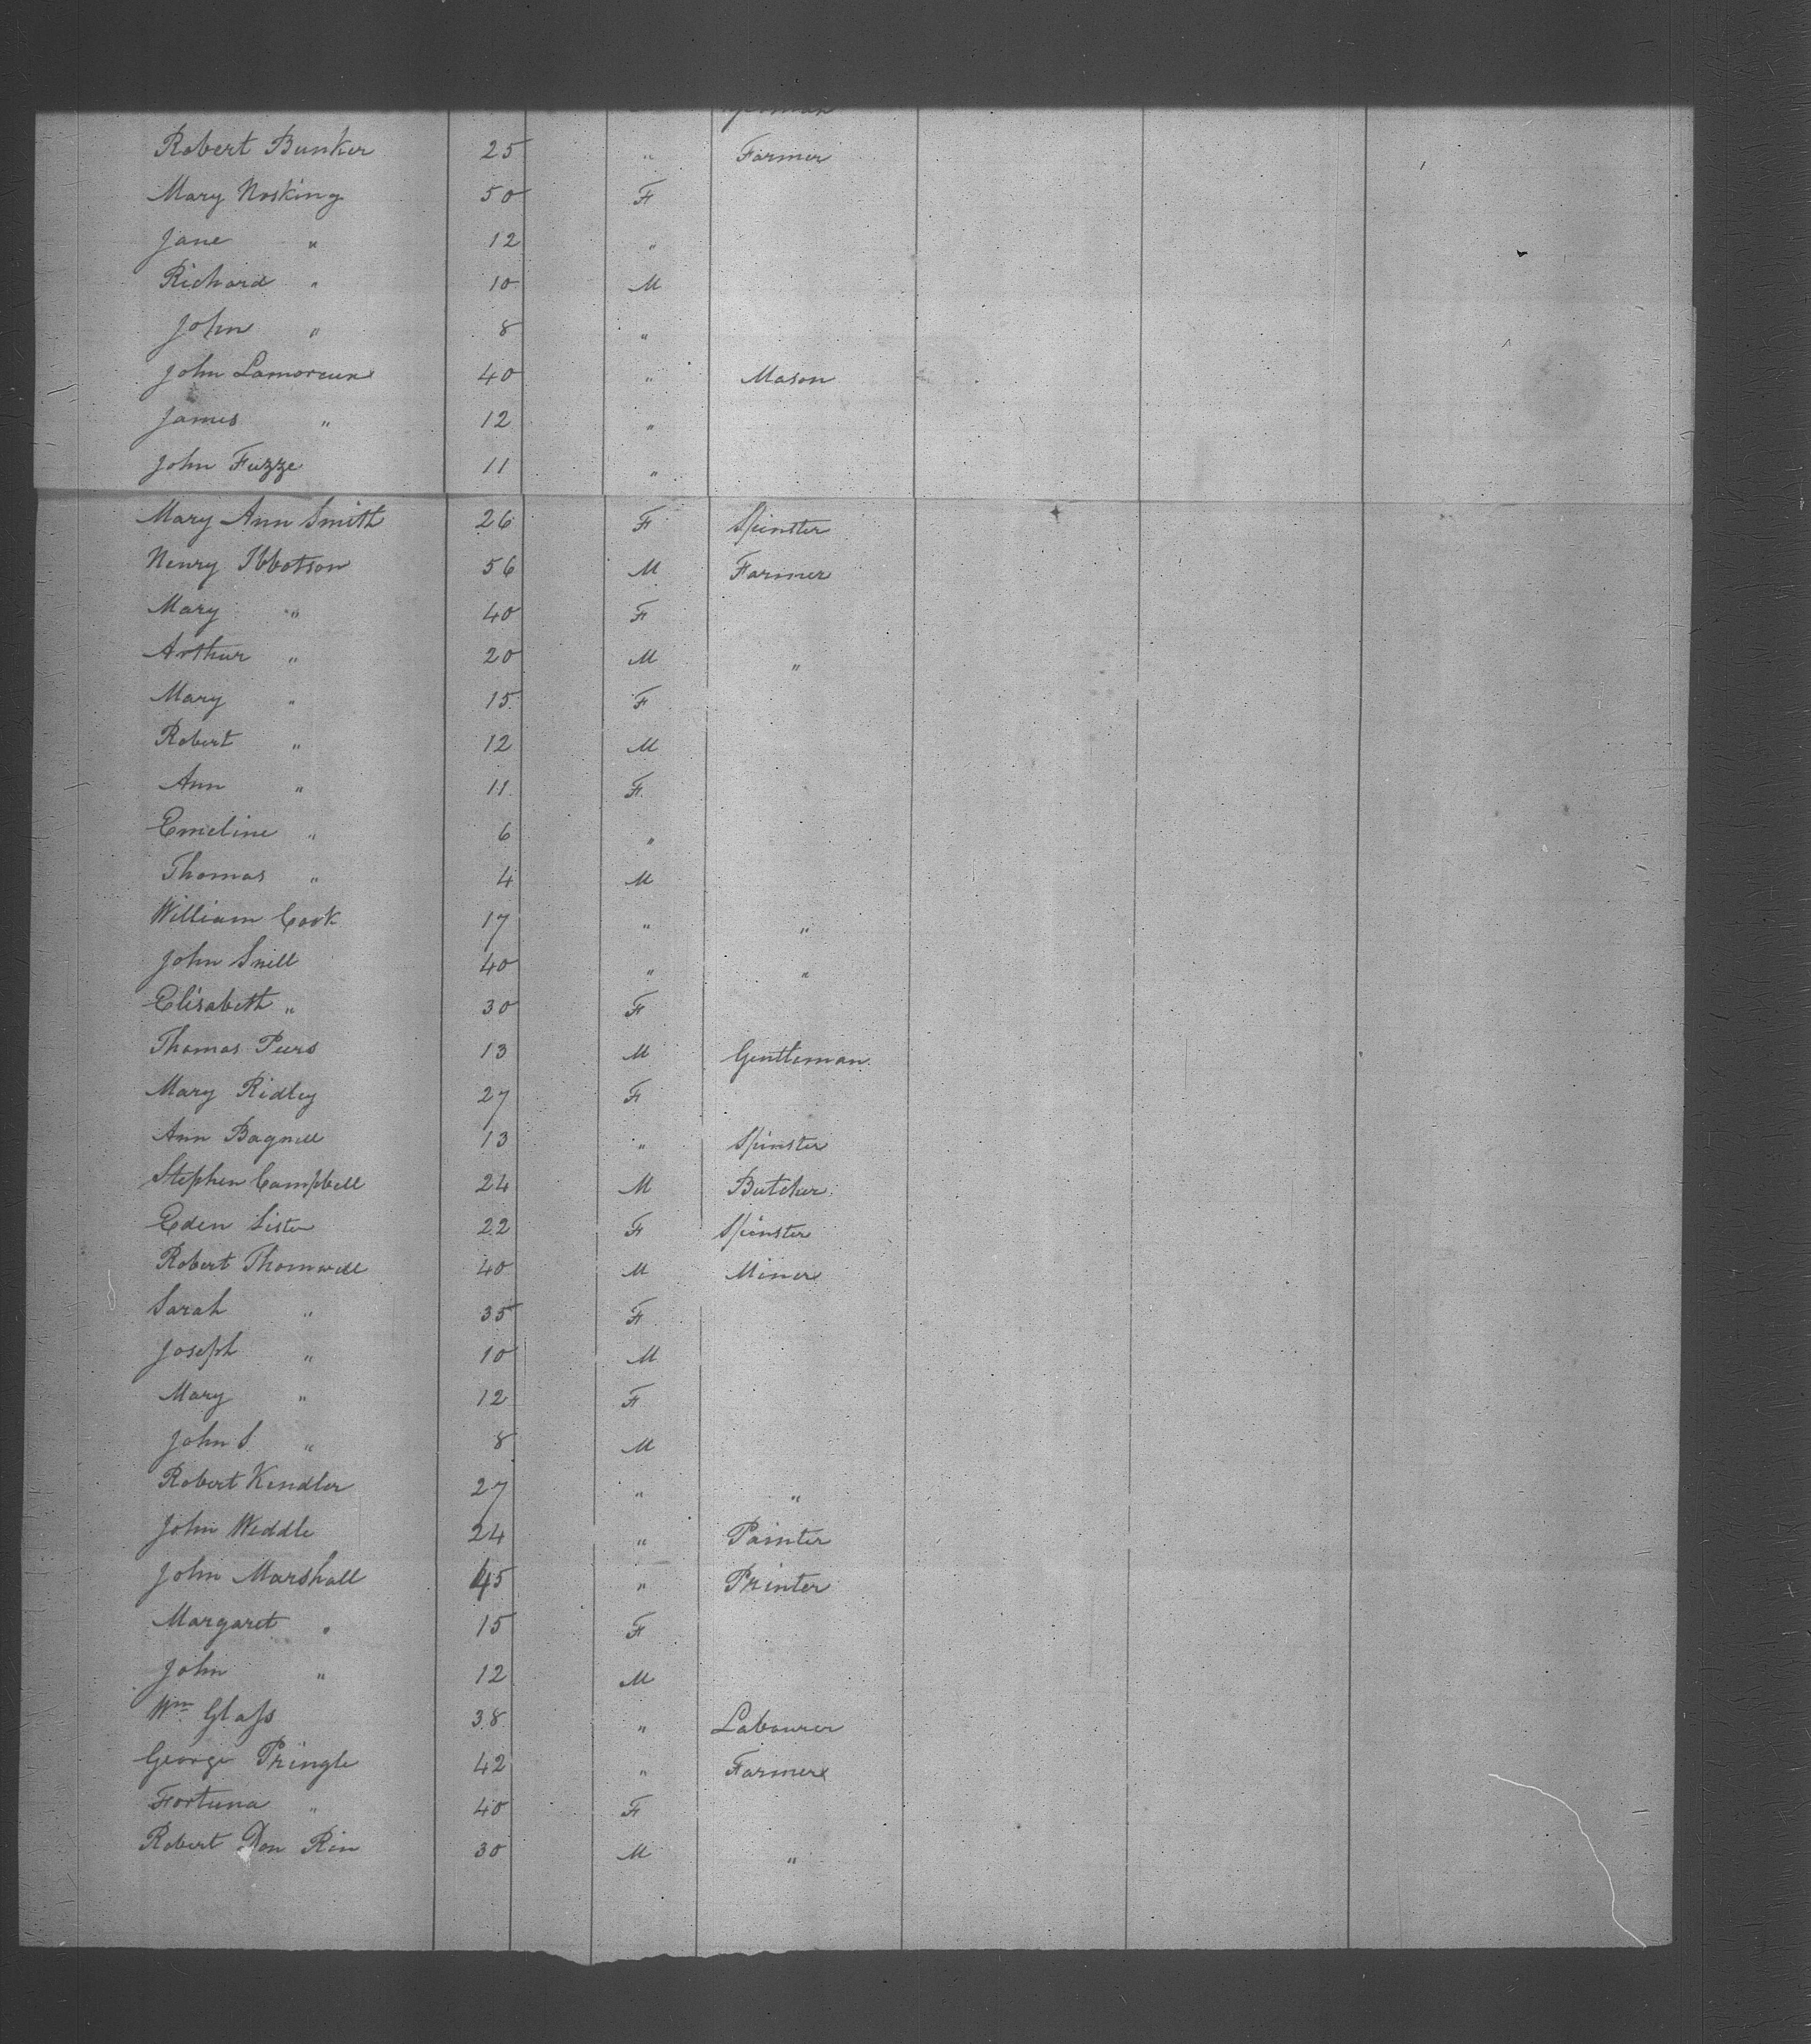 Robert Bunker 25 " Farmer
Mary Hosking 50 F
Jane " 12 "
Richard " 10 M
John " 8 "
John Lamoreux 40 " Mason
James " 12 "
John Fuzze 11 "
Mary Ann Smith 26 F Spinster
Henry Ibbotson 56 M Farmer
Mary " 40 F
Arthur " 20 M "
Mary " 15 F
Robert " 12 M
Ann " 11 F
Emeline " 6 "
Thomas " 4 M
William Cook 17 " "
John Snell 40 " "
Elisabeth " 30 F
Thomas Peers 13 M Gentleman
Mary Ridley 27 F
Ann Bagnell 13 " Spinster
Stephen Campbell 24 M Butcher
Eden Sister 22 F Spinster
Robert Thomwell 40 M Miner
Sarah " 35 F
Joseph " 10 M
Mary " 12 F
John S. " 8 M
Robert Kendler 27 " "
John Weddle 24 " Painter
John Marshall 45 " Printer
Margaret " 15 F
John " 12 M
Wm Glass 38 " Labourer
George Pringle 42 " Farmer
Fortuna " 40 F
Robert Don Rin 30 M "